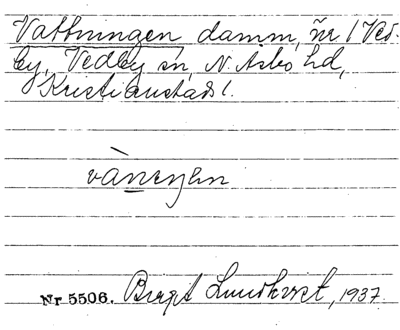 Vattningen damm, nr 1 Ved-
by, Vedby sn, N. Åsbo hd,
Kristianstads l.
vànıŋən
Nr 5506. Birgit Lundkvist, 1937.